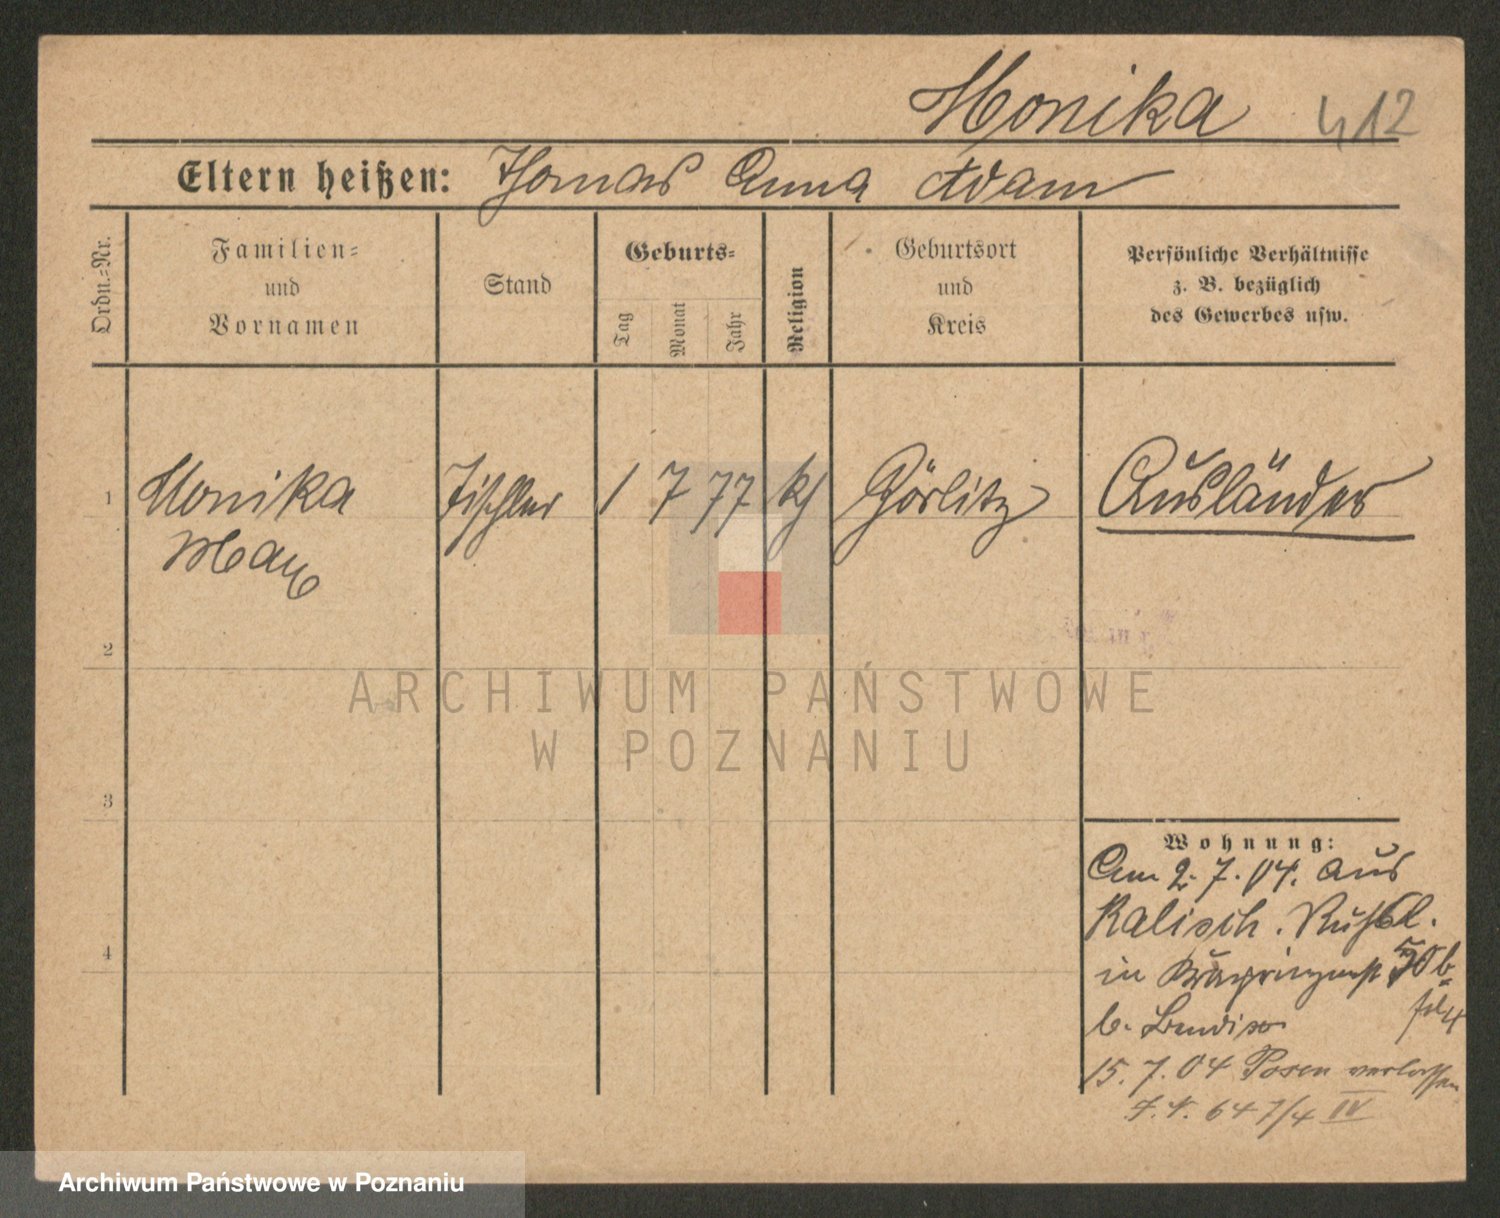 Monika 412
Eltern heißen: Thomas Anna Adam
Ordn.-Nr.
Familien-
und
Vornamen
Stand
Geburts-
Tag
Monat
Jahr
Religion
Geburtsort
und
Kreis
Persönliche Verhältnisse
z. B. bezüglich
des Gewerbes usw.
1 Monika Tischler 1 7 77 kth Görlitz Ausländer
Max
2
ARCHIWUM PAŃSTWOWE
W POZNANIU
3
Wohnung:
Am 2. 7. 04. aus
Kalisch. Rußl.
4
in 50b
b.
15. 7. 04 Posen verlassen
647/4 IV
Archiwum Państwowe w Poznaniu